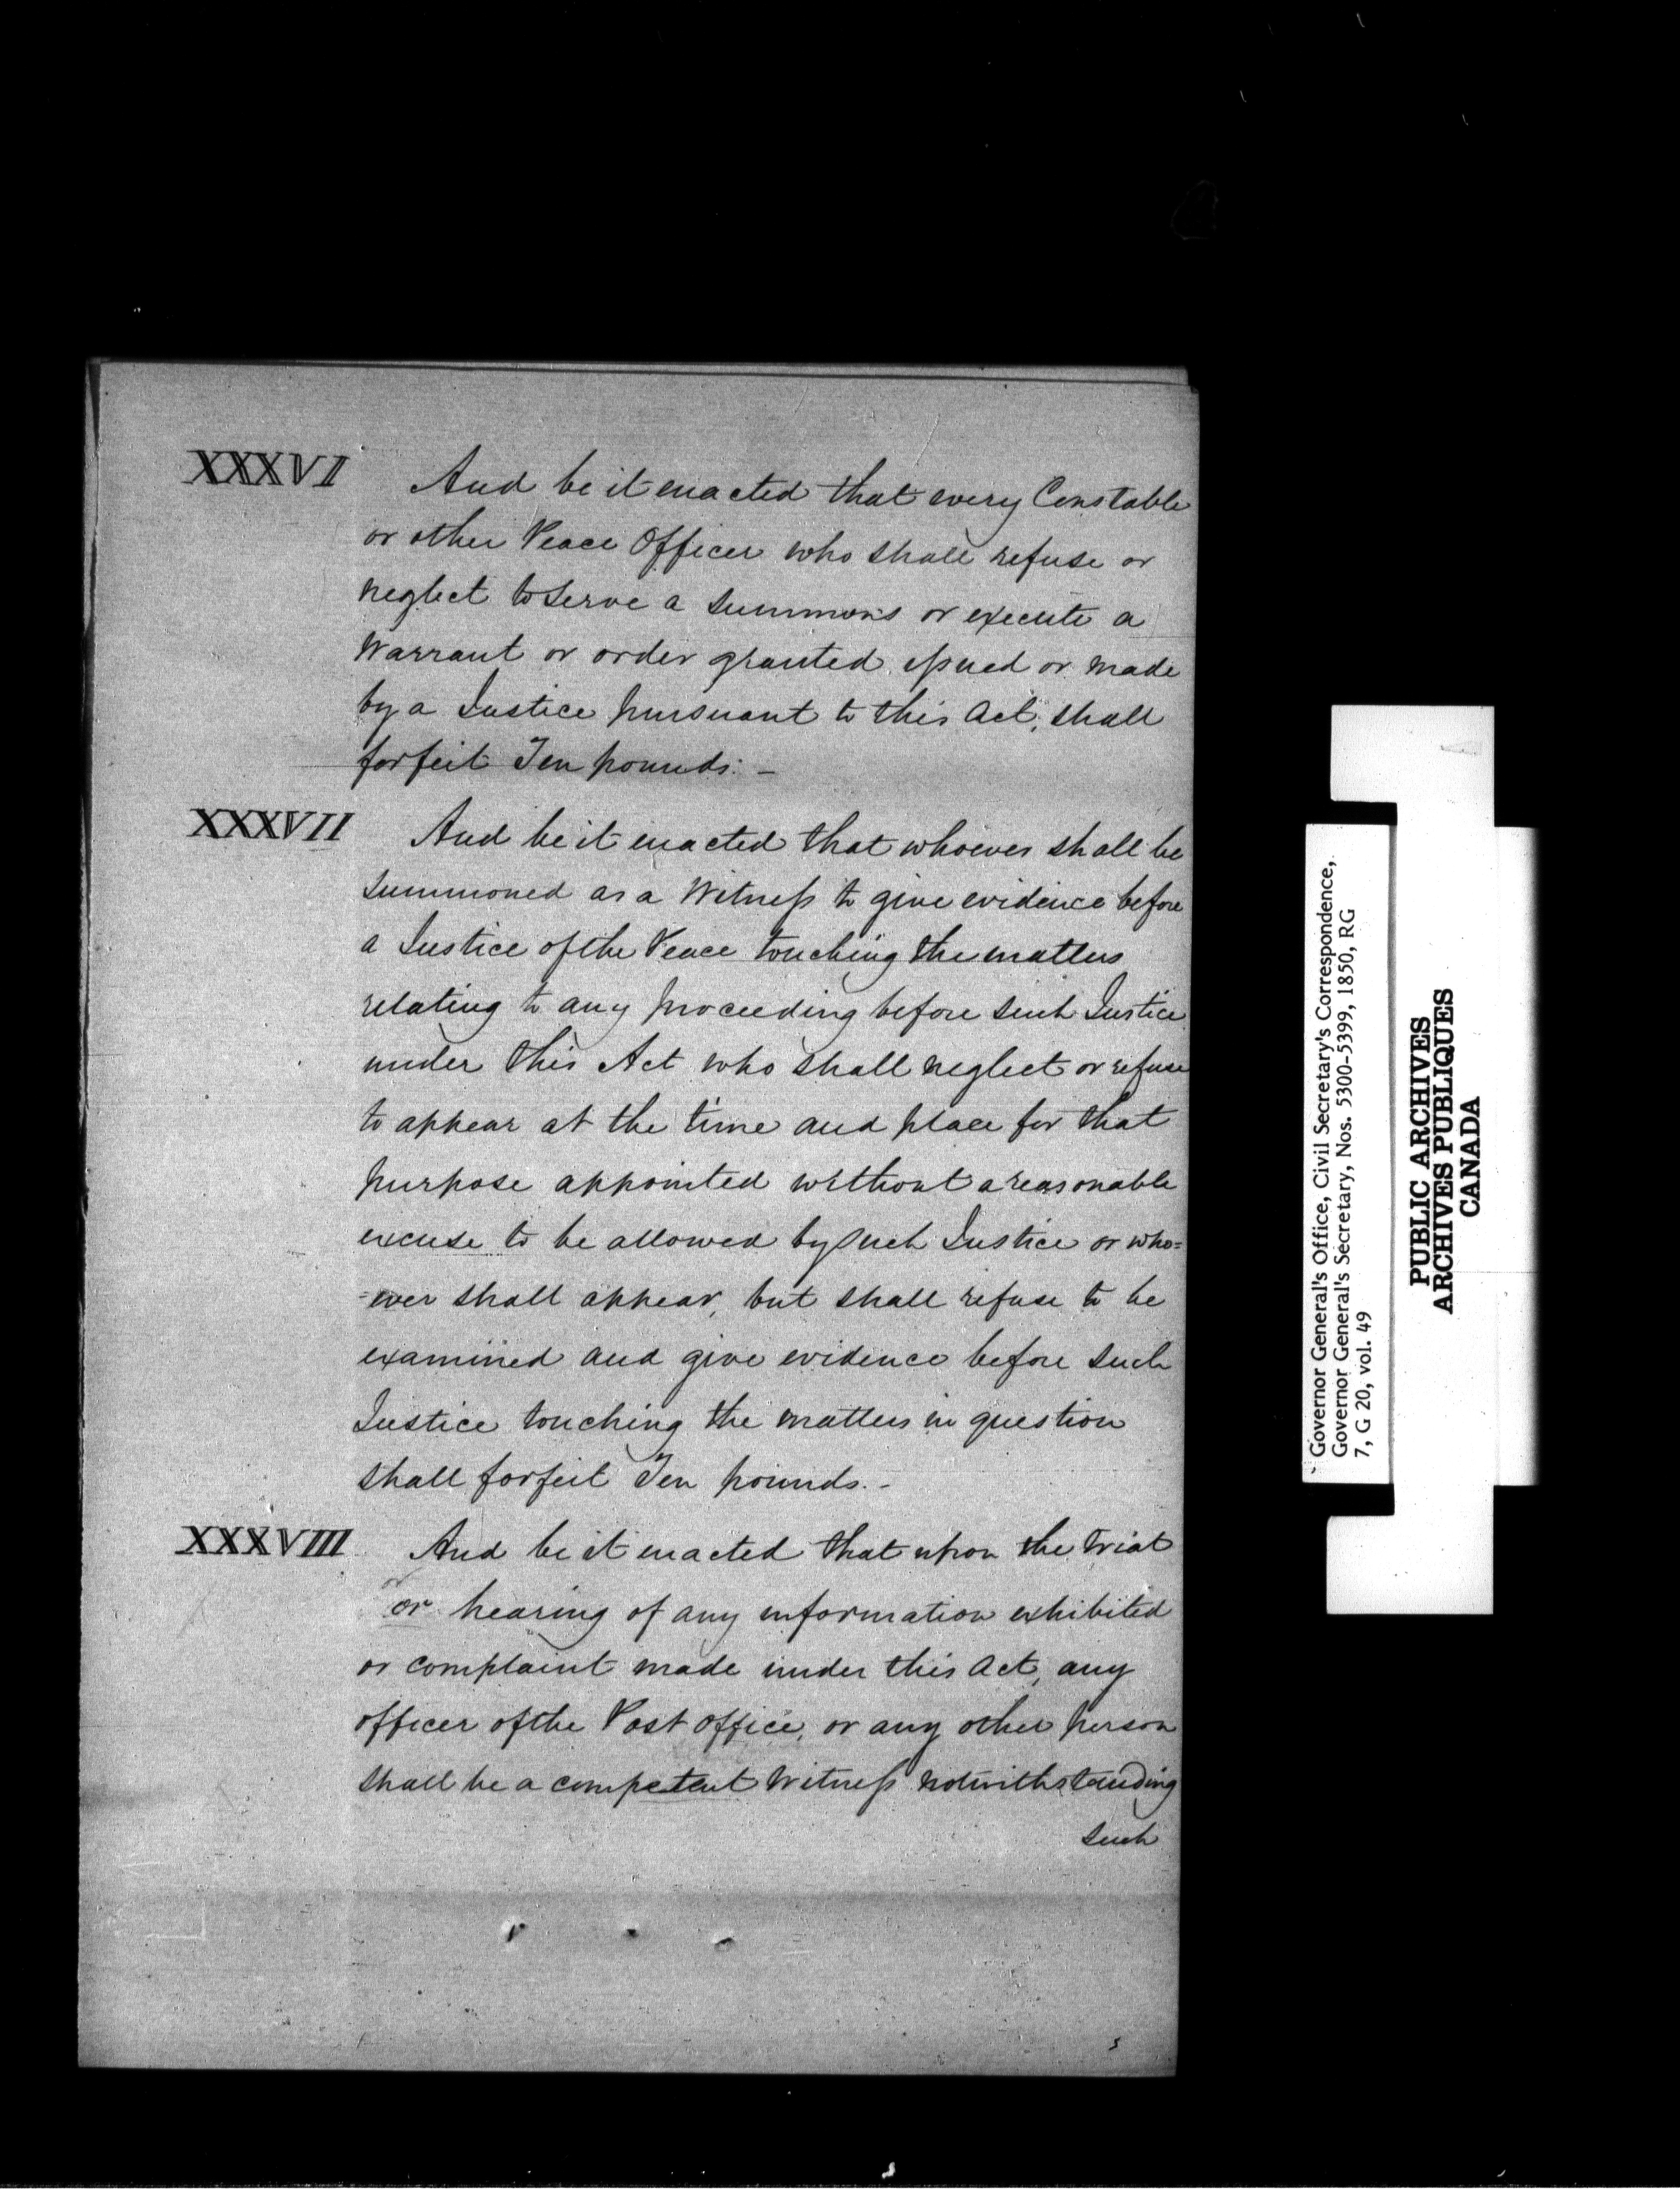 XXXVI And be it enacted that every Constable
or other Peace Officer who shall refuse or
neglect to serve a summons or execute a
Warrant or order granted, issued or made
by a Justice pursuant to this Act, shall
forfeit Ten pounds. –
XXXVII And be it enacted that whoever shall be
summoned as a Witness to give evidence before
a Justice of the Peace touching the matters
relating to any proceeding before such Justice
under this Act who shall neglect or refuse
to appear at the time and place for that
purpose appointed without a reasonable
excuse to be allowed by such Justice or who=
=ever shall appear, but shall refuse to be
examined and give evidence before such
Justice touching the matters in question
shall forfeit Ten pounds. –
XXXVIII And be it enacted that upon the trial
or hearing of any information exhibited
or complaint made under this Act, any
officer of the Post office, or any other person
shall be a competent Witness notwithstanding
such
Governor General's Office, Civil Secretary's Correspondence,
Governor General's Secretary, Nos. 5300-5399, 1850, RG
7, G 20, vol. 49
PUBLIC ARCHIVES
ARCHIVES PUBLIQUES
CANADA